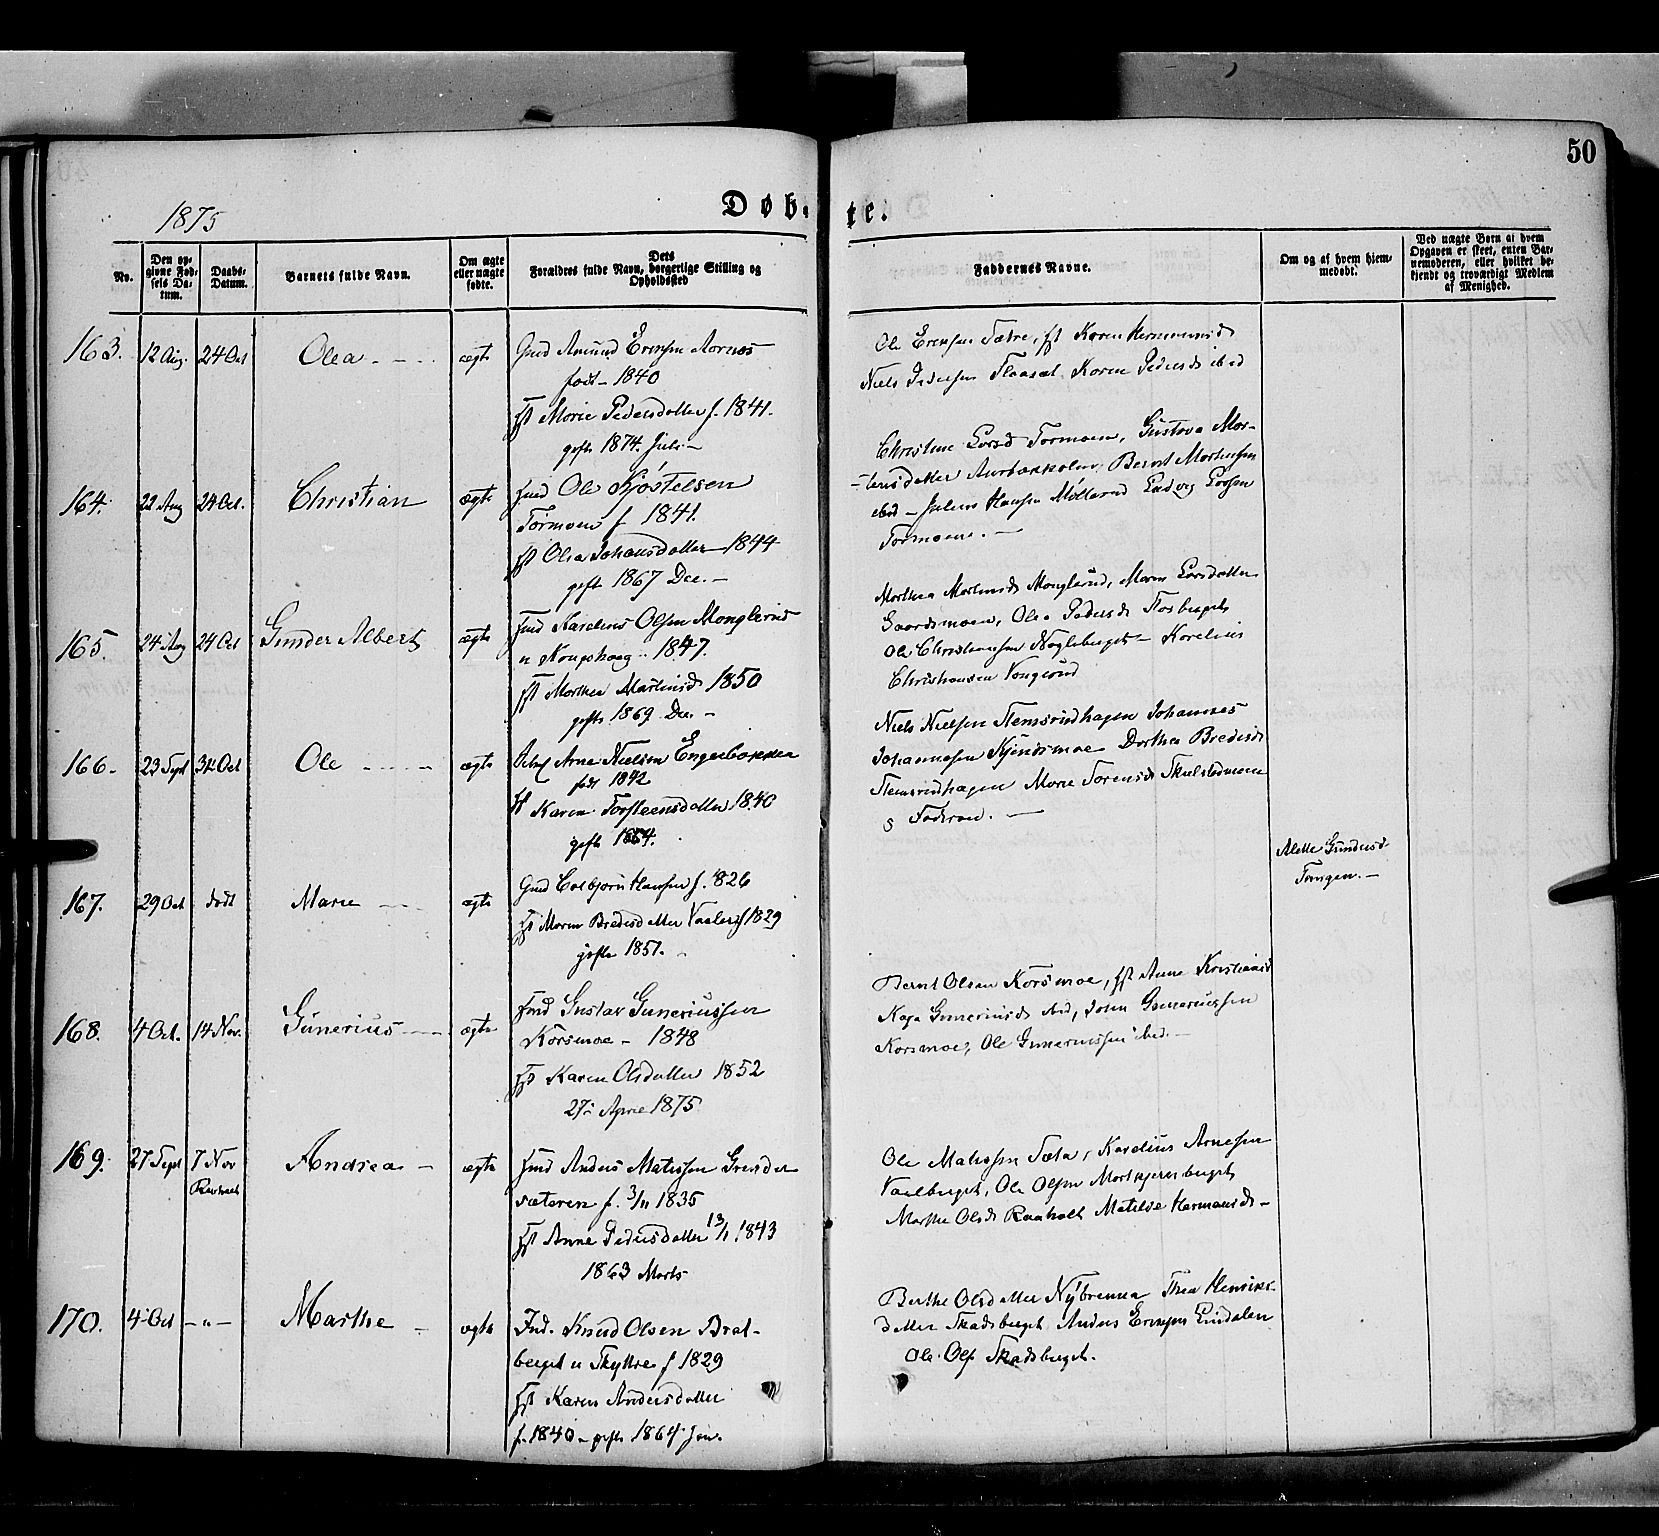 50
1875
Døbte.
No.
Den opgivne Fødsels Datum.
Daabs-Datum.
Barnets fulde Navn.
Om ægte eller uægte fødte.
Dets Forældres fulde Navn, borgerlige Stilling og Opholdssted
Faddernes Navne.
Om og af hvem hjemmedøbt.
Ved uægte Børn at hvem Opgaven er skeet, enten Barnemoderen, eller hvilket bekjendt og troværdigt Medlem af Menighed.
163. 12 Aug. 24 Oct Olea ægte Gmd Amund Eriksen Aarnæs
født 1840
Marie Pedersdatter f. 1841.
gift 1874. Juli
Ole Eriksen Sætre, Karen Hermansd
Niels Pedersen Karen Pedersd ibid
164. 22 Aug 24 Oct. Christian ægte Ole Kjøstelsen
Tormoen f 1841.
Olea Johansdatter 1844
gift 1867 Dec.
Christine Larsd Tormoen, Gustava Mor-
tensdatter Bernt Mortensen
ibid Julius Hansen Møllerud Ludvig Larsen
Tormoen.
165. 24 Aug 24 Oct Gunder Albert ægte Karelius Olsen Monglerud
u Kongshaug 1847.
Marthea Martinsd 1850
gift 1869 Dec.
Marthea Martinsd Monglerud, Maren Larsdatter
Gaardsmoen, Olea Pedersd
Ole Christiansen Nygleberget Karelius
Christiansen Vongerud
166. 23 Sept 31 Oct Ole ægte Arne Nielsen Engerbakken
født 1842
Karen Torsteensdatter 1840
gift 1864.
Niels Nielsen Stemsrudhagen Johannes
Johannesen Kjendsmoe Dorthea Bredesd
Stemsrudhagen Marie Torensd Skulstadmoen
s Faderen.
167. 29 Oct dødt Marie ægte Gmd Colbjørn Hansen f. 826
Maren Bredesdatter Vaaler f 1829
gifte 1851.
Alette Gundersd
Tangen.
168. 4 Oct. 14 Nov. Gunerius ægte Gustav Guneriussen
Korsmoe 1848
Karen Olsdatter 1852
27 April 1875
Bernt Olsen Korsmoe, Anne Kristiansd
Kaja Guneriusd ibid, John Guneriussen
Korsmoe, Ole Guneriussen ibid.
169. 27 Sept 7 Nov Andrea ægte Anders Mathissen Grinder
sæteren f. 3/11 1835
Anne Pedersdatter 13/1 1843
1863 Marts
Ole Mathissen Sæta, Karelius Arnesen
Vaalberget, Ole Olsen Mortkjernsberget
Marthe Olsd Raaholt Matilde Hermansd
170. 4 Oct Marthe ægte Ind. Knud Olsen Brat-
berget u Skyttre f 1829
Karen Andersdatter
f. 1840 gift 1864 Jan.
Berthe Olsdatter Nybrenna Thea Henriks-
datter Skadsberget Anders Eriksen Lindalen
Ole Ols Skadsberget.